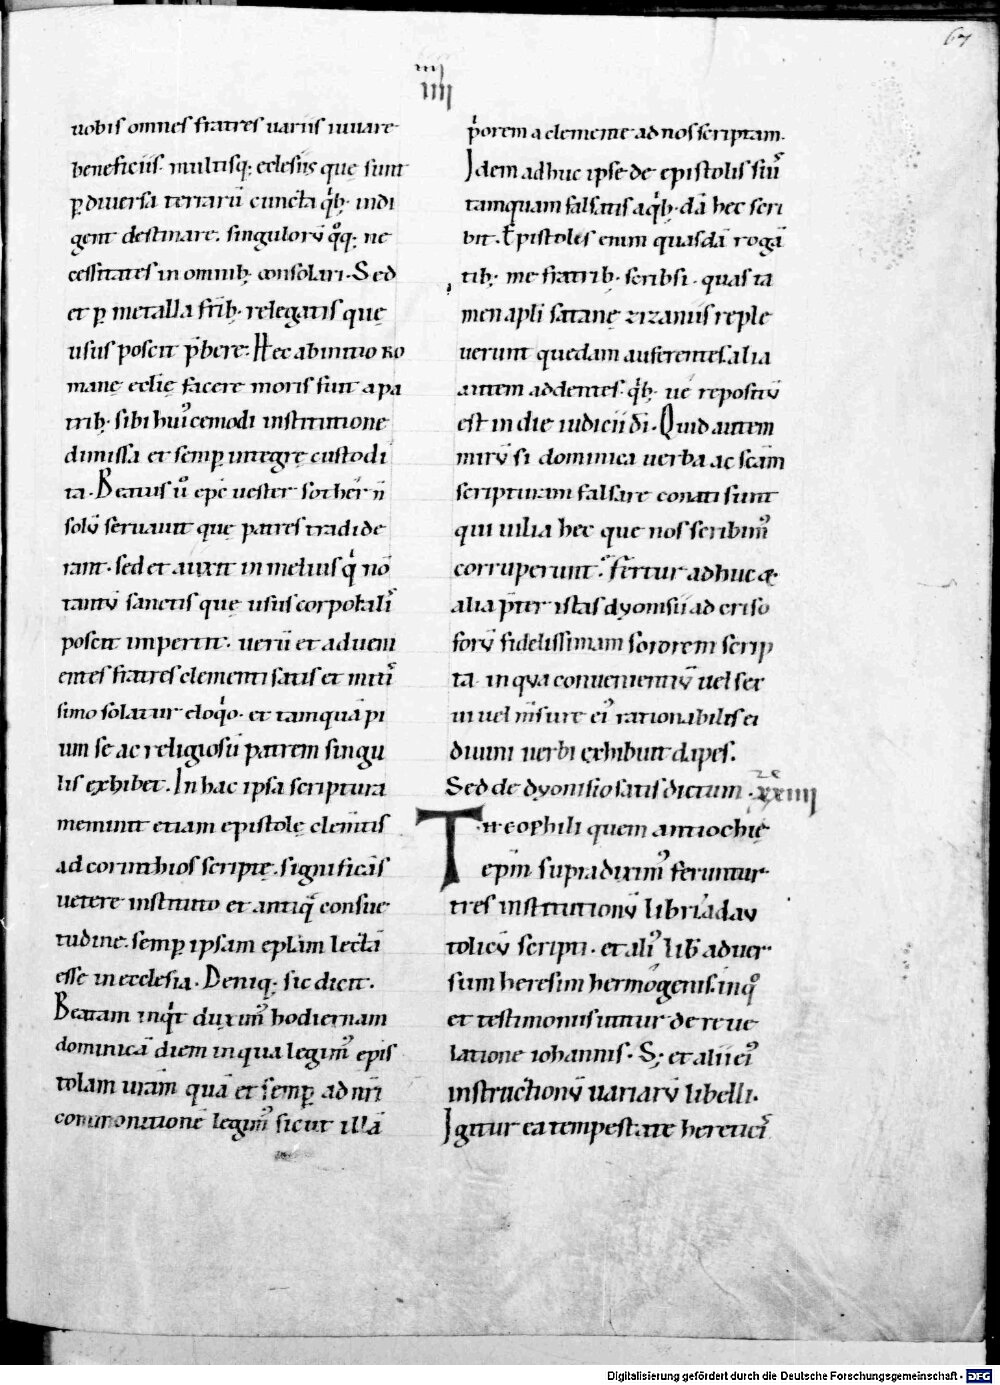 67
IIII
IIII
uobis omnes fratres uariis iuuare
beneficiis. multisq; eclesiis quę sunt
ꝑ diuersa terrarū cuncta qͥbꝫ. indi
gent destinare. singulorꝝ qͦq; ne
cessitates in omnibꝫ consolari. Sed
et ꝑ metalla frībꝫ. relegatis quę
usus poscit p̄bere. Hec ab initio ro
manę eclię facere moris fuit a pa
tribꝫ. sibi huiꝰcemodi institutione
dimissa et semꝑ integrę custodi
ta. Beatus ů epc uester sother n̄
solū seruauit quę patres tradide
rant. sed et auxit in melius qͥ nō
tantū sanctis quę usus corporaliꝰ
poscit impertit. uerū et adueni
entes fratres clementi satis et mitiꝰ
simo solatur eloqͦo. et tamquā pi
um se ac religiosū patrem singu
lis exhibet. In hac ipsa scriptura
meminit etiam epistolę clem̄tis
ad corinthios scriptę. significās
uetere instituto et antiq̄ consue
tudine. semꝑ ipsam eplam lectā
esse in ecclesia. Deniq; sic dicit.
Beatam inqͥt duximꝰ hodiernam
dominicā diem in qua legimꝰ epis
tolam uram̄ quā et semꝑ ad nr̄i
commonitionē legimꝰ sicut illā
pͥorem a clemente ad nos scriptam.
Idem adhuc ipse de epistolis suiꝰ
tamquam falsatis aqͥbꝫ. dā hec scri
bit. Epistolas enim quasdā rogā
tibꝫ. me fratribꝫ. scribsi. quas ta
men apli satanę zizaniis reple
uerunt quedam auferentes. alia
autem addentes. qͥbꝫ. uę repositū
est in die iudicii dī. Quid autem
mirū si dominica uerba ac scām
scripturam falsare conati sunt
qui uilia hec que nos scribimꝰ
corruperunt. Fertur adhuc ę.
alia p̄ter istas dyonisii ad criso
forū fidelissimam sororem scrip
ta. in qua conuenientiū uel ser
ui uel m̄sure eiꝰ rationabilis ei
diuini uerbi exhibuit dapes.
Sed de dyonisio satis dictum. XXIIII
Theophili quem antiochię
epm̄ supra diximꝰ feruntur
tres institutionū libri ad au
tolicū scripti. et aliꝰ lib̄ aduer
sum heresim hermogenis. inqͦ
et testimoniis utitur de reue
latione iohannis. S; et alii eiꝰ
instructionū uariarū libelli.
Igitur ea tempestate hereticiꝰ
Digitalisierung gefördert durch die Deutsche Forschungsgemeinschaft - DFG